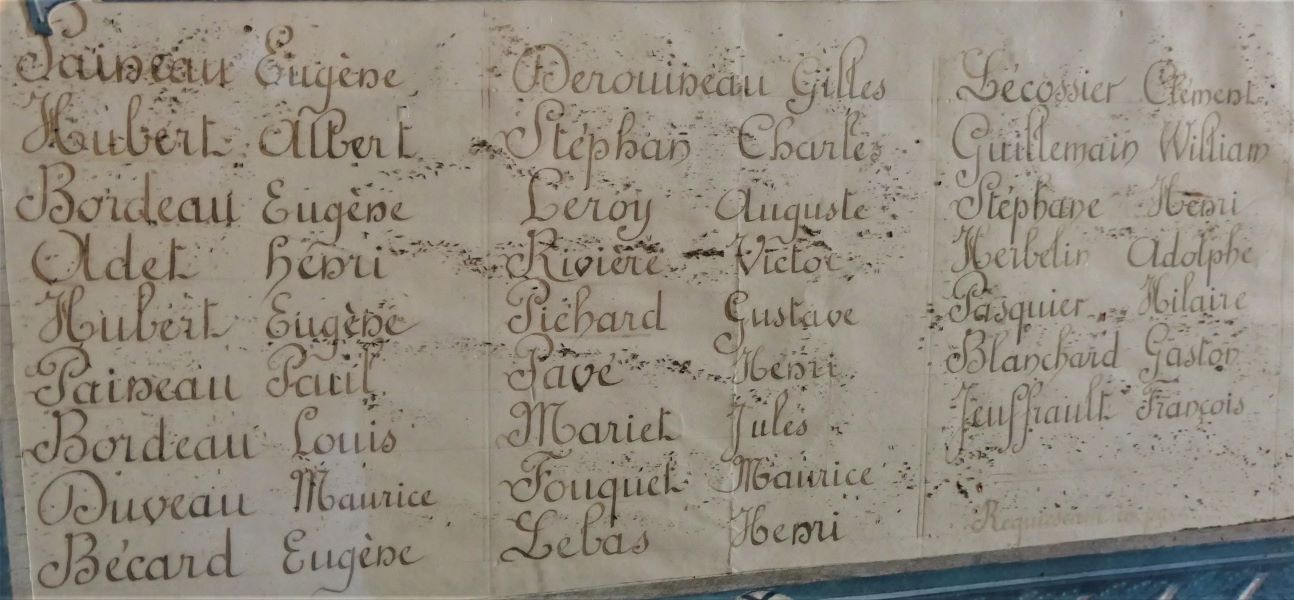 Paineau Eugène
Hubert Albert
Bordeau Eugène
Adet henri
Hubert Eugène
Paineau Paul
Bordeau Louis
Duveau Maurice
Bécard Eugène
Derouineau Gilles
Stéphan Charles
Leroy Auguste
Rivière Victor
Pichard Gustave
Pavé Henri
Mariet Jules
Fouquet Maurice
Lebas Henri
Lécossier Clément
Guillemain William
Stéphane Henri
Herbelin Adolphe
Pasquier Hilaire
Blanchard Gaston
Jeuffrault François
Requiescant in